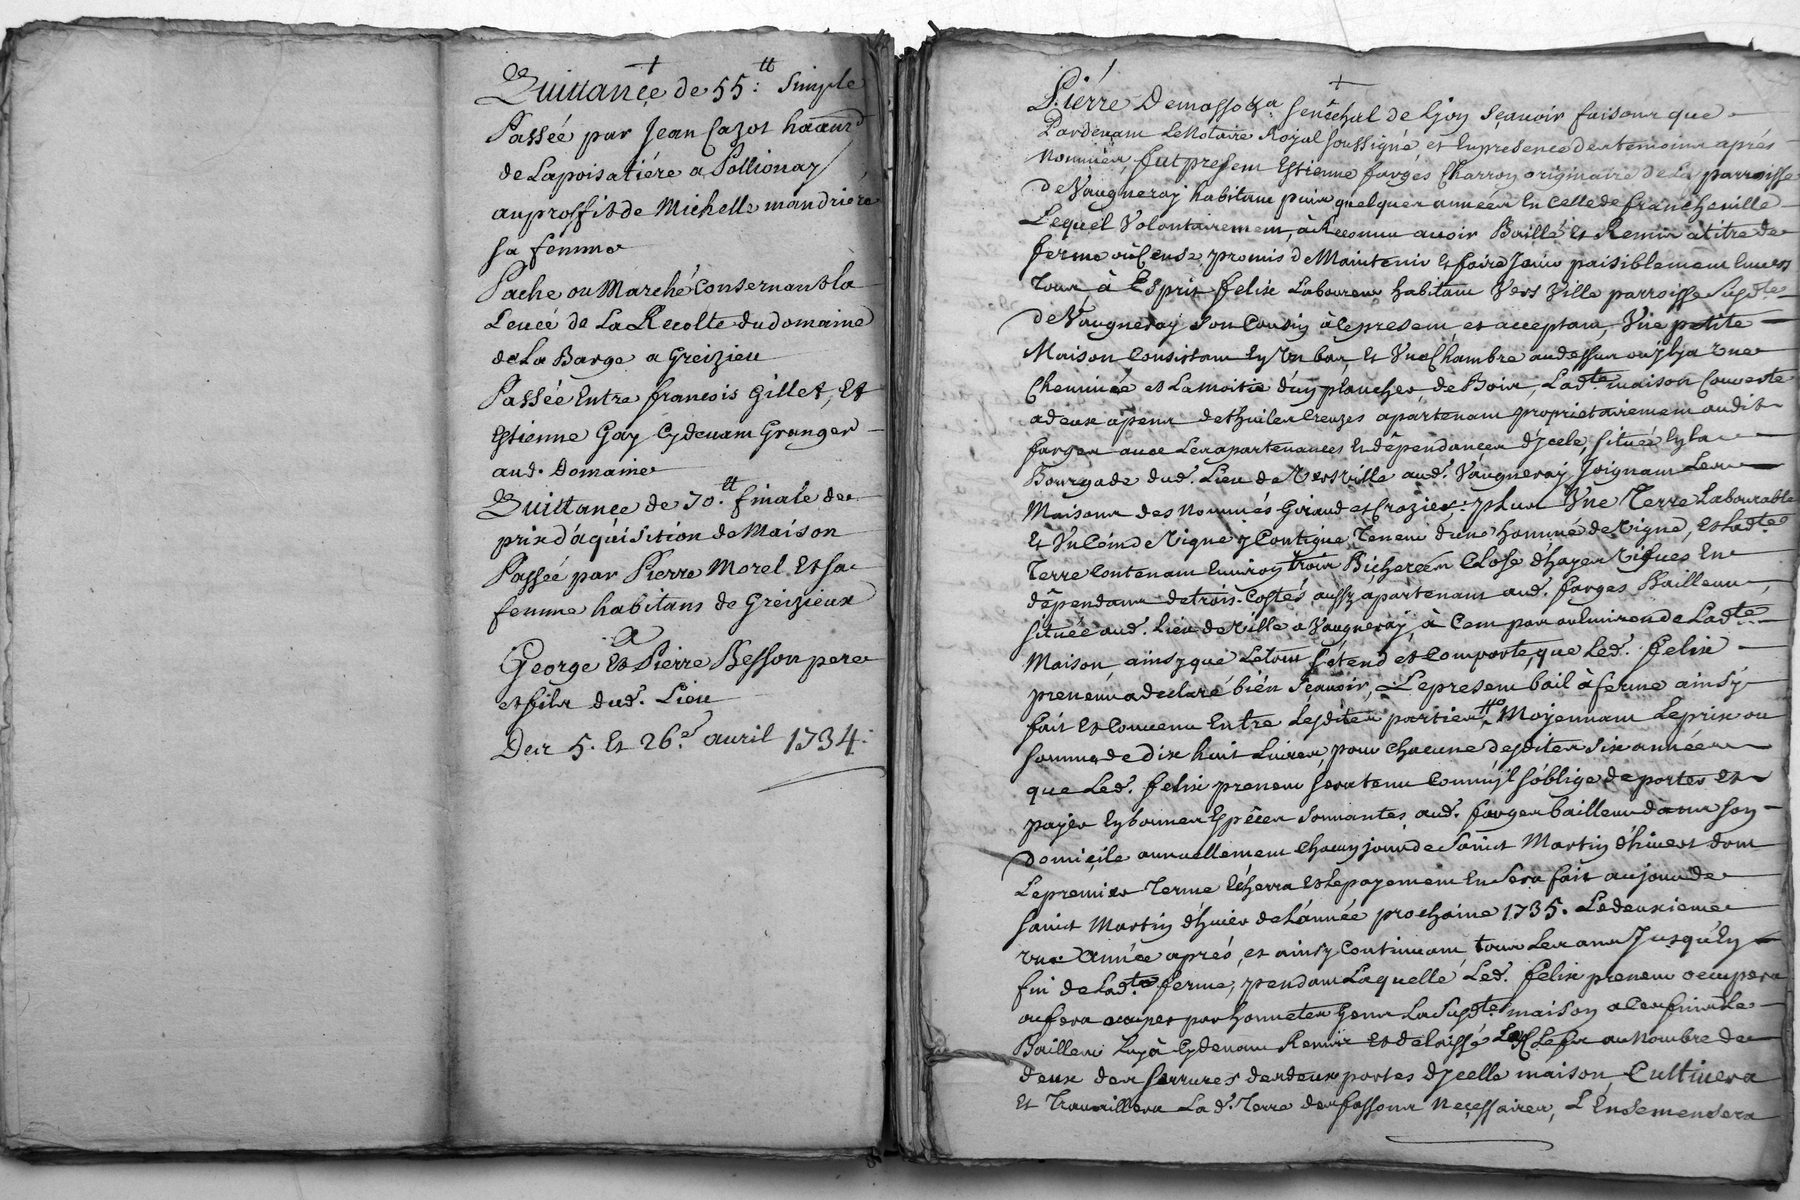 Quittance de 55.tt simple
Passée par Jean Cazot
de Lapoisatiére a Pollionay
au proffit de Michelle mandriére
sa femme
Pache ou Marché Consernant la
Levéé de La Recolte du domaine
de La Barge a Greizieu
Passée Entre francois Gillet, Et
Estienne Gay Cydevant Granger
aud. Domaine
Quittance de 70.tt finale de
prix d'aquisition de Maison
Passéé par Pierre Morel Et sa
femme habitans de Greizieux
A
George Et Pierre Besson pere
et fils dud. Lieu
Des 5. Et 26.e avril 1734.
Pierre Demasso &a Senéchal de Lyon Sçavoir faisons que
Pardevant Le Notaire Royal soussigné et En presence des temoins aprés
Nommés, fut present Estienne farges Charron originaire de La parroisse
de Vaugneray habitant puis quelques années En Celle de francheville
Lequel Volontairement, à Reconnu avoir Baillé Et Remis a titre de
ferme ou Cense, promis de Maintenir Et faire Jouir paisiblement Envers
Tous, à Esprit felix Laboureur habitant Vers Ville parroisse Susdte
de Vaugneray son Cousin à Ce present et acceptant, Une petite
Maison Consistant En Un bas, Et Une Chambre au dessus ou Il y a une
Cheminée et La moitié d'un plancher de Bois, Ladte maison Couverte
a deux apens de thuiles Creuzes apartenant proprietairement audit
farges avec Les apartenances Et dépendances d'Icele, située En la
Bourgade dud. Lieu de Versville aud. Vaugneray Joignant Les
Maisons des Nommés Giraud et Crozier; plus Une Terre Labourable
Et Un Coin de Vigne y Contigue Teneur d'une homméé de Vigne, Et Ladte
Terre Contenant Environ trois Bicherées Close d'hayes Vifves En
dépendans de trois Costés aussy apartenant aud. farges Bailleur,
située aud. Lieu de Ville a Vaugneray, à Cent pas ou Environ de Ladte
Maison ainsy que Le tout s'étend et Comporte, que Led. felix
preneur a declaré bien sçavoir, Le present bail à ferme ainsy
fait Et Convenu Entre Lesdites parties Moyennant Le prix ou
somme de Dix huit Livres, pour Chacune desdites six années
que Led. felix preneur sera tenu Comme Il s'oblige de porter Et
payer En bonnes Espêces sonnantes, aud. farges bailleur dans son
domicile annuellement Chacun jour de Saint Martin d'hivert dont
Le premier Terme Echerra Et Le payement En sera fait au jour de
Saint Martin d'hiver de L'année prochaine 1735. Le deuxieme
une Année aprés, et ainsy Continuant tous Les ans Jusqu'En
fin de Ladte ferme, pendant Laquelle Led. felix preneur occupera
ou fera occuper par honnetes Gens La Susdte maison a Ces fins Le
Bailleur Luy à Cydevant Remis Et delaissé Les Clefs au Nombre de
deux des serrures des deux portes d'Icelle maison, Cultivera
Et Travaillera La d. Terre des fassons Necessaires, L'Ensemensera